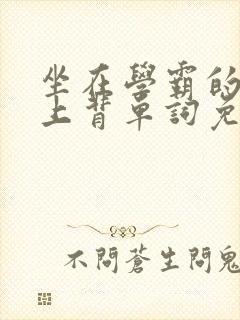 坐在學霸的
上背單詞免
不問蒼生問鬼